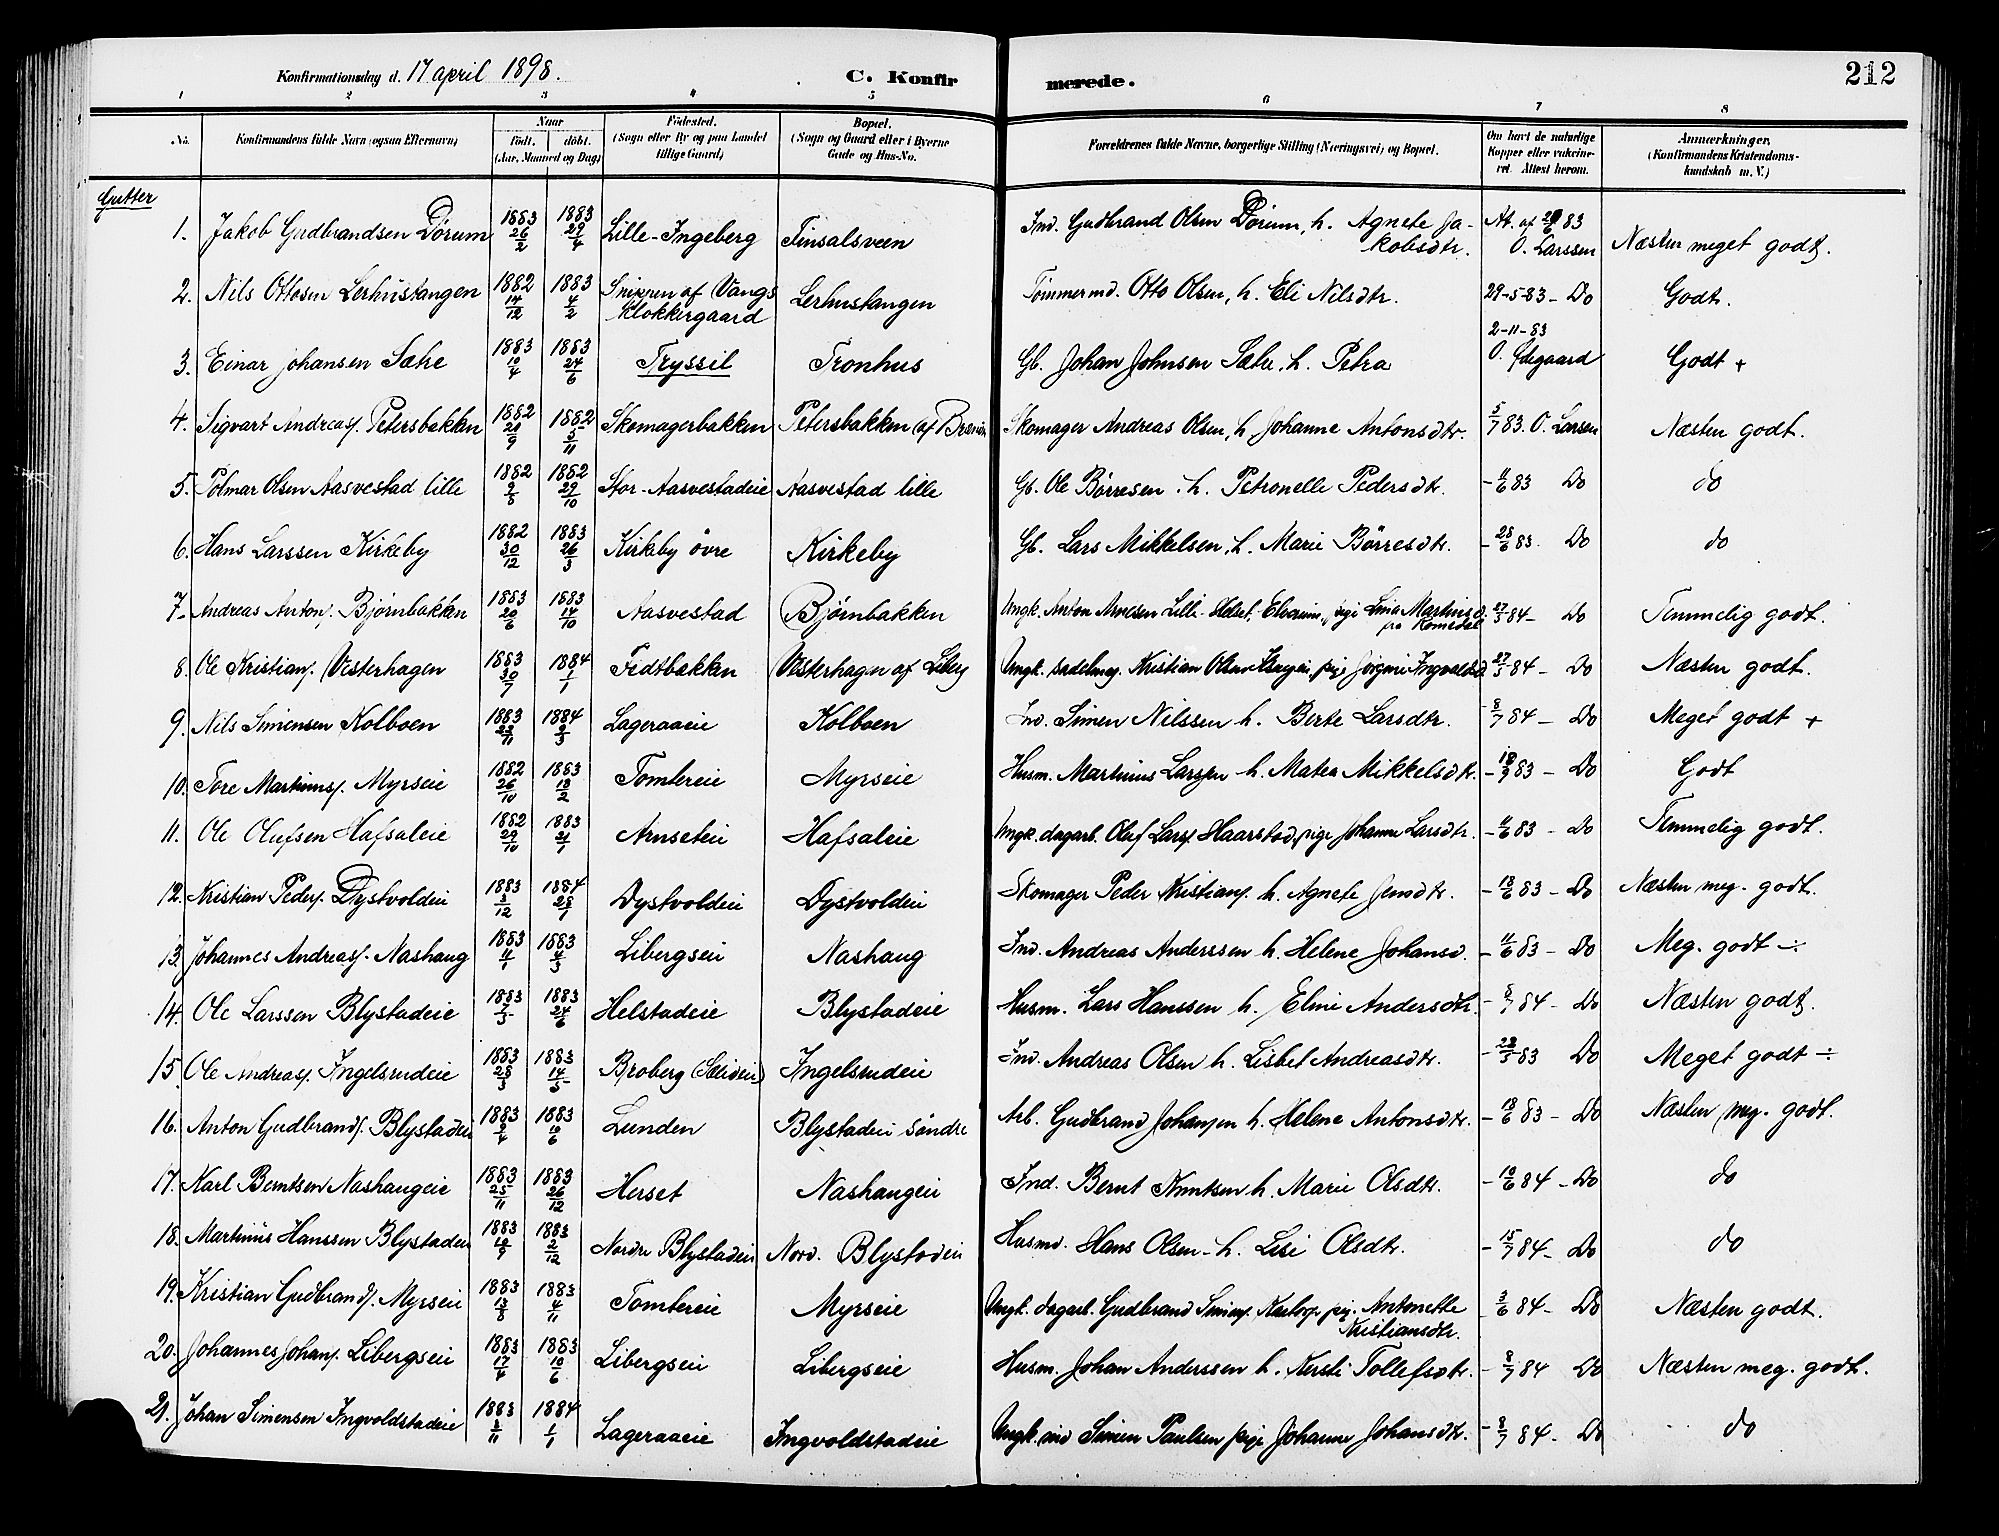 Konfirmationsdag d. 17 april 1898.
C. Konfir
merede.
212
1 2 3 4 5 6 7 8
No. Konfirmandens fulde Navn (ogsaa Efternavn) Naar födt. döbt. (Aar, Maaned og Dag) Födested. (Sogn eller By og paa Landet tillige Gaard) Bopæl. (Sogn og Gaard eller i Byerne Gade og Hus-No. Forældrenes fulde Navne, borgerlige Stilling (Næringsvei) og Bopæl. Om havt de naturlige Kopper eller vakcineret. Attest herom. Anmærkninger, (Konfirmandens Kristendomskundskab m. V.)
Gutter
1. Jakob Gudbrandsen Dørum 1883 26/2 1883 29/4 Lille-Ingeberg Finsalsveen Ind. Gudbrand Olsen Dörum, h. Agnete Jakobsdtr. At. af 83 O. Larssen Næsten meget godt.
2. Nils Ottosen Lerhustangen 1882 14/12 1883 4/2 af Vangs Klokkergaard Lerhustangen Tømmermd. Otto Olsen, h. Eli Nilsdtr. 29-5-83- Do Godt.
3. Einar Johansen Sæhre 1883 10/4 1883 24/6 Tryssil Tronhus Gb. Johan Johnsen Sæhre, h. Petra 2-11-83 O. Ødegaard Godt +
4. Sigvart Andreas. Petersbakken 1882 20/9 1882 5/11 Skomagerbakken Petersbakken af Skomager Andreas Olsen, h Johanne Antonsdtr. 5/7 83. O. Larsen Næsten godt.
5. Polmar Olsen Aasvestad lille 1882 9/8 1882 29/10 Stor-Aasvestadeie Aasvestad lille Gb. Ole Børresen. h. Petronelle Pedersdtr. - 11/6 83 Do do
6. Hans Larssen Kirkeby 1882 30/12 1883 26/3 Kirkeby övre Kirkeby Gb. Lars Mikkelsen, h. Marie Børresdtr. - 28/6 83. Do do
7. Andreas Anton. Bjørnbakken 1883 20/6 1883 14/10 Aasvestad Bjørnbakken Ungk. Anton Arnesen Lille-Helset, Elverum, pige Lina Martinsd. fra Romedal 27/5 84- Do Temmelig godt.
8. Ole Kristian. Vesterhagen 1883 30/7 1884 1/1 Fedtbakken Vesterhagen af Liberg Ungk. sadelmag. Kristian Olsen pige Jörgine Ingvaldsd. 27/5 84- Do Næsten godt.
9. Nils Simensen Kolboen 1883 22/11 1884 9/3 Lageraaeie Kolboen Ind. Simen Nilssen h. Berte Larsdtr. 8/7 84- Do Meget godt +
10. Tore Martinus. Myrseie 1882 26/10 1883 18/2 Tomtereie Myrseie Husm. Martinius Larssen h. Matea Mikkelsdtr. - 18/9 83- Do Godt
11. Ole Olufsen Hafsaleie 1882 29/10 1883 21/1 Arnseteie Hafsaleie Ungk. dagarb. Oluf Lars. Haarstad, pige Johanne Larsdtr. - 11/6 83- Do Temmelig godt.
12. Kristian Peders. Dystvoldeie 1883 3/12 1884 28/1 Dystvoldeie Dystvoldeie Skomager Peder Kristians. h. Agnete Jensdtr. - 18/6 83- Do Næsten meg. godt.
13. Johannes Andreas. Nashaug 1883 11/1 1883 4/3 Libergseie Nashaug Ind. Andreas Anderssen h. Helene Johansd. - 11/6 83- Do Meg. godt ÷
14. Ole Larssen Blystadeie 1883 7/5 1883 24/6 Helstadeie Blystadeie Husm. Lars Hanssen h. Eline Andersdtr. - 8/7 84- Do Næsten godt.
15. Ole Andreas. Ingelsrudeie 1883 28/3 1883 14/5 Broberg (Sælideie) Ingelsrudeie Ind. Andreas Olsen h. Lisbet Andreasdtr. - 28/5 83 Do Meget godt ÷
16. Anton Gudbrands. Blystadeie 1883 9/4 1883 10/6 Lunden Blystadeie söndre Arb. Gudbrand Johansen h. Helene Antonsdtr. - 18/6 83- Do Næsten meg. godt.
17. Karl Berntsen Nashaugeie 1883 25/11 1883 26/12 Herset Nashaugeie Ind. Bernt Knutsen h. Marie Olsdtr. - 10/6 84- Do do
18. Martinius Hanssen Blystadeie 1883 19/9 1883 2/12 Nordre Blystadeie Nord. Blystadeie Husmd. Hans Olsen- h. Lisi Olsdtr. - 15/7 84- Do do
19. Kristian Gudbrands. Myrseie 1883 13/8 1883 4/11 Tomtereie Myrseie Ungk. dagarb. Gudbrand Simens. pig. Antonette Kristiansdtr. - 3/6 84- Do Næsten godt.
20. Johannes Johans. Libergseie 1883 17/4 1883 10/6 Libergseie Libergseie Husm. Johan Anderssen h. Kersti Tollefsdtr. - 8/7 84 Do Næsten meg. godt.
21. Johan Simensen Ingvoldstadeie 1883 3/11 1884 1/1 Lageraaeie Ingvoldstadeie Ungk. ind Simen Paulsen pige Johanne Johansdtr. - 8/7 84- Do do